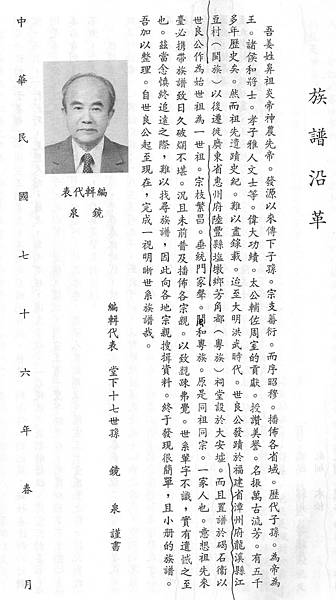 族譜沿革
吾姜姓鼻祖炎帝神農先帝。發源以來傳下子孫。宗支蕃衍。而序昭穆。播佈各省域。歷代子孫。為帝為
王。諸侯和將士。孝子雅人文士等。偉大功績。太公輔佐周室的貢獻。授讚美譽。名振萬古流芳。有五千
多年歷史矣。然而祖先遺蹟史紀。難以盡錄載。迨至大明洪武時代。世良公發蹟於福建省漳州府龍溪縣江
豆村(閩族)以後遷徙廣東省惠州府陸豐縣塩墩鄉芳角都(粵族)祠堂設於大安墟。而且置譜於碣石衞以
世良公作為始世祖為一世祖。宗枝繁昌。垂統門家聲。閩和粵族。原是同祖同宗。一家人也。意想祖先來
臺必携帶族譜致日久破爛不堪。況且未前普及播佈各宗親。以致親疎弗覺。世系單字不識，實有遺憾之至
也。茲當念慎終追遠之際，難以找尋族譜，因此向各地宗親搜揖資料。終于發現很簡單，且小册的族譜。
吾加以整理。自世良公起至現在，完成一視明晰世系族譜哉。
編輯代表 堂下十七世孫 鏡泉 謹書
編輯代表
鏡泉
中華民國七十六年春月